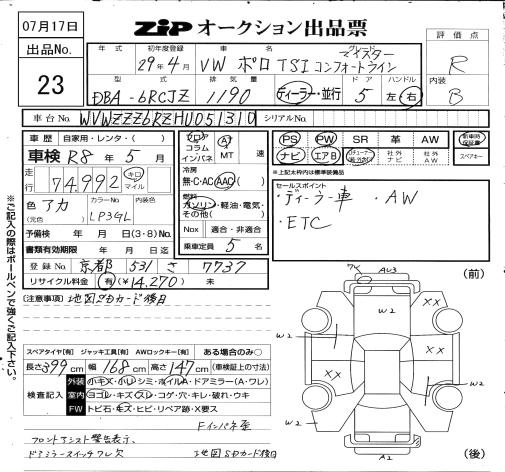 07月17日
ZIP オークション出品票
出品No.
23
年式 初年度登録 車名 グレード
29年4月 VW ポロ TSI コンフォートライン マイスター
評価点
R
型式 排気量 ドア ハンドル
DBA-6RCJZ 1190 ディーラー・並行 5 左 右
内装
B
車台No. WVWZZZ6RZHU051310 シリアルNo.
車歴 自家用・レンタ・( )
車検 R8年5月
走行 74,992 キロ マイル
色 アカ (元色) カラーNo. LP3GL 内装色
予備検 年 月 日(3・8)No.
書類有効期限 年 月 日迄
登録No. 京都 531 さ 7737
リサイクル料金 有(¥14,270) 未
フロア コラム インパネ AT MT 速
冷房
無・C・AC AAC
燃料
ガソリン・軽油・電気・その他( )
Nox 適合・非適合
乗車定員 5 名
PS PW SR 革 AW 新車時保証書
ナビ エアB 社外ナビ 社外AW スペアキー
※上記太枠内は標準装備品
セールスポイント
・ディーラー車 ・AW
・ETC
(注意事項) 地図SDカード後日
※ご記入の際はボールペンで強くご記入下さい。
(前)
AU3
W2
XX
XX
W2
W2
XX
XX
W2
W2
A2
(後)
スペアタイヤ[有] ジャッキ工具[有] AWロックキー[有] ある場合のみ○
長さ 399 cm 幅 168 cm 高さ 147 cm (車検証上の寸法)
検査記入
外装 小キズ・小U・シミ・ホイルA・ドアミラー(A・ワレ)
室内 ヨゴレ・キズ・スレ・コゲ・穴・キレ・破れ・ウキ
FW トビ石・キズ・ヒビ・リペア跡・X要ス
Fインパネ歪
フロントアシスト警告表示、
ドアミラースイッチワレ欠 地図SDカード後日